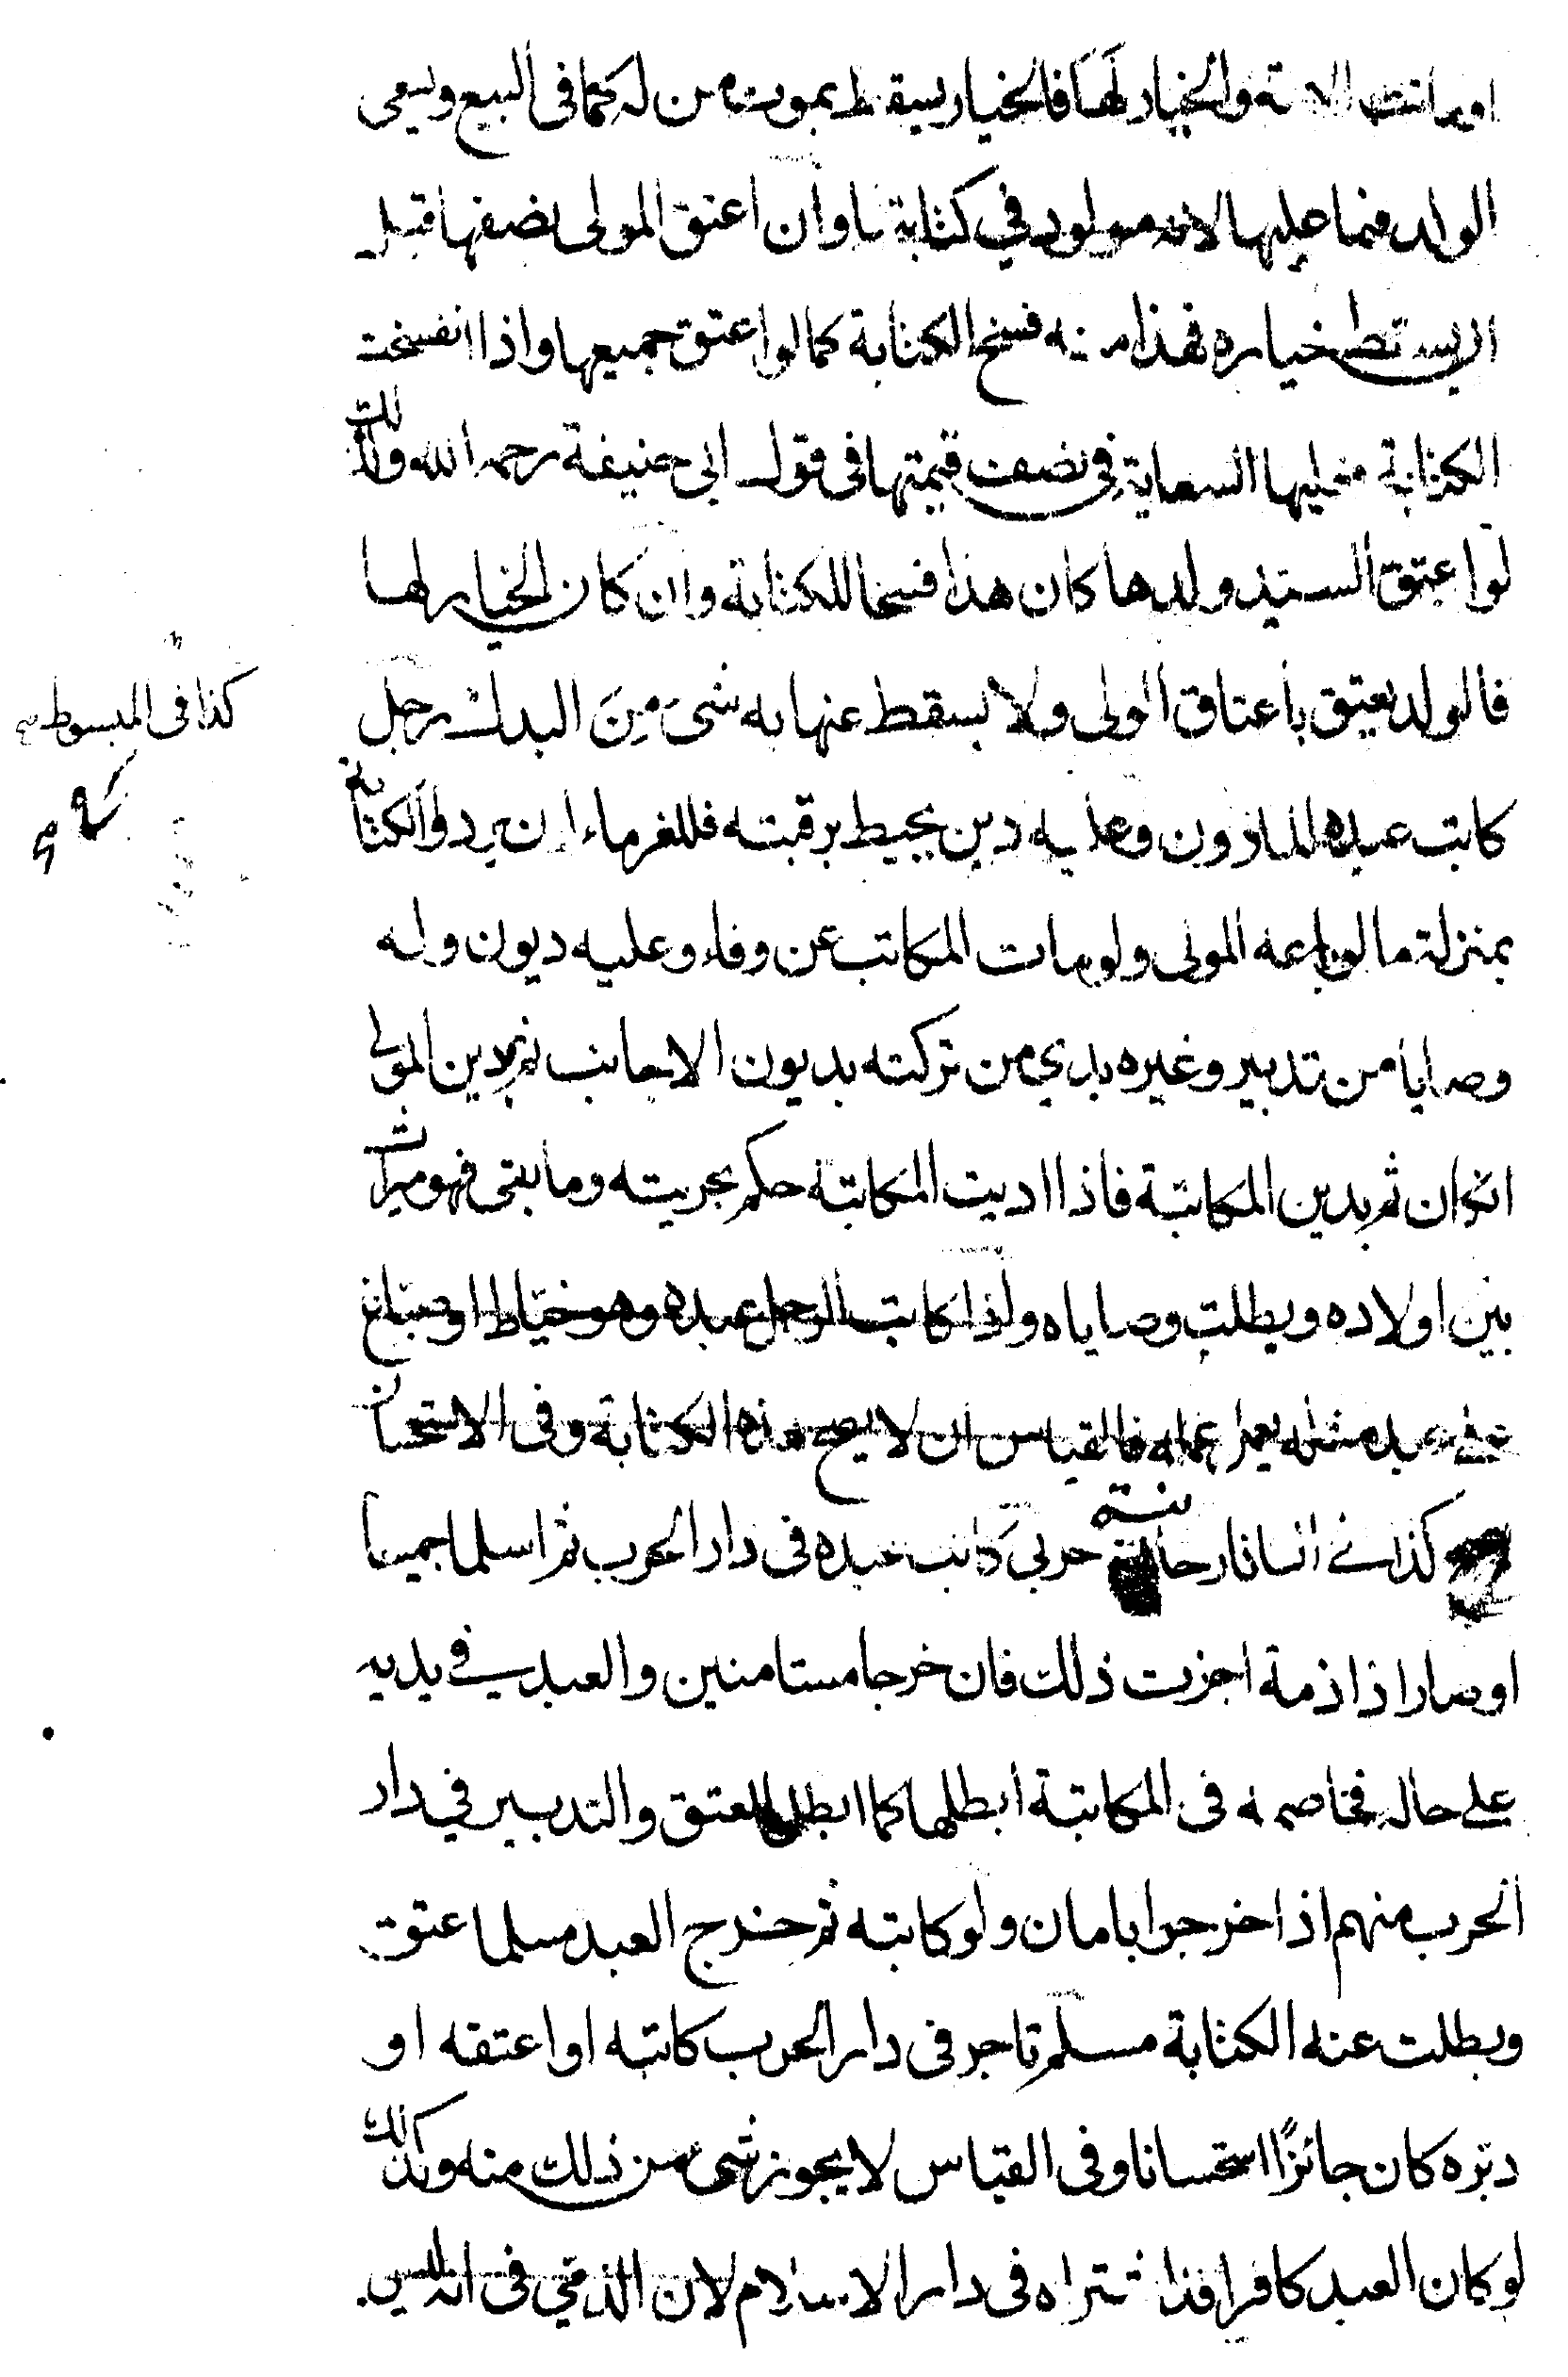 او ماتت الامة والخيار لها فالخيار يسقط بموت من له كما في البيع ويسعى
الولد فيما عليها لانه مولود في كتابتها وان اعتق المولى نصفها قبل
ان يسقط خياره فهذا منه فسخ الكتابة كما لو اعتق جميعها واذا انفسخت
الكتابة فعليها السعاية في نصف قيمتها في قول ابي حنيفة رحمه الله وكذلك
لو اعتق السيد ولدها كان هذا فسخا للكتابة وان كان الخيار لها
فالولد يعتق باعتاق المولى ولا يسقط عنها به شئ من البدل رجل
كذا في المبسوط
كاتب عبده الماذون وعليه دين يحيط برقبته فللغرماء ان يردوا الكتابة
بمنزلة ما لو باعه المولى ولو مات المكاتب عن وفاء وعليه ديون وله
وصايا من تدبير وغيره بدي من تركته بديون الاجانب ثم بدين المولى
ان كان ثم بدين المكاتبة فاذا اديت المكاتبة حكم بحريته وما بقي فهو ميراث
بين اولاده وبطلت وصاياه واذا كاتب الرجل عبده وهو خياط او صباغ
على عبد مثله يعمل عمله فالقياس ان لا يصح هذه الكتابة وفي الاستحسان
كذا في التتارخانية حربي كاتب عبده في دار الحرب ثم اسلما جميعا
او صارا ذا ذمة اجزت ذلك فان خرجا مستامنين والعبد في يديه
على حاله فخاصمه في المكاتبة ابطلها كما ابطل العتق والتدبير في دار
الحرب منهم اذا خرجوا بامان ولو كاتبه ثم خرج العبد مسلما عتق
وبطلت عنه الكتابة مسلم تاجر في دار الحرب كاتبه او اعتقه او
دبره كان جائزًا استحسانا وفي القياس لا يجوز شئ من ذلك منه وكذلك
لو كان العبد كافرا قد اشتراه في دار الاسلام لان الذمي في انه ليس